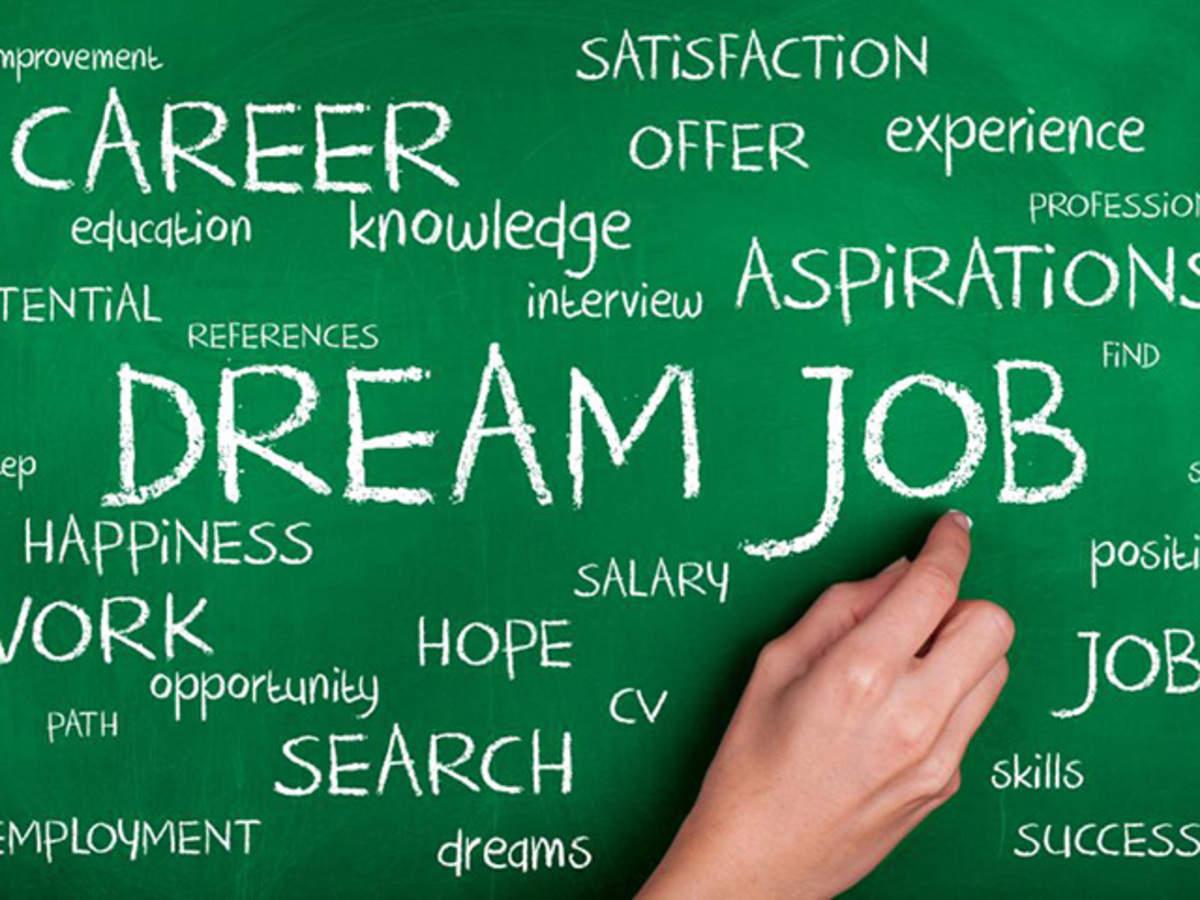 mprovement
SATiSFACTiON
CAREER
OFFER
experience
PROFESSiON
education
knowledge
ASPiRATiONS
TENTiAL
interview
REFERENCES
FiND
DREAM JOB
ep
HAPPiNESS
SALARY
positi
WORK
HOPE
JOB
opportunity
CV
PATH
SEARCH
skills
EMPLOYMENT
dreams
SUCCESS